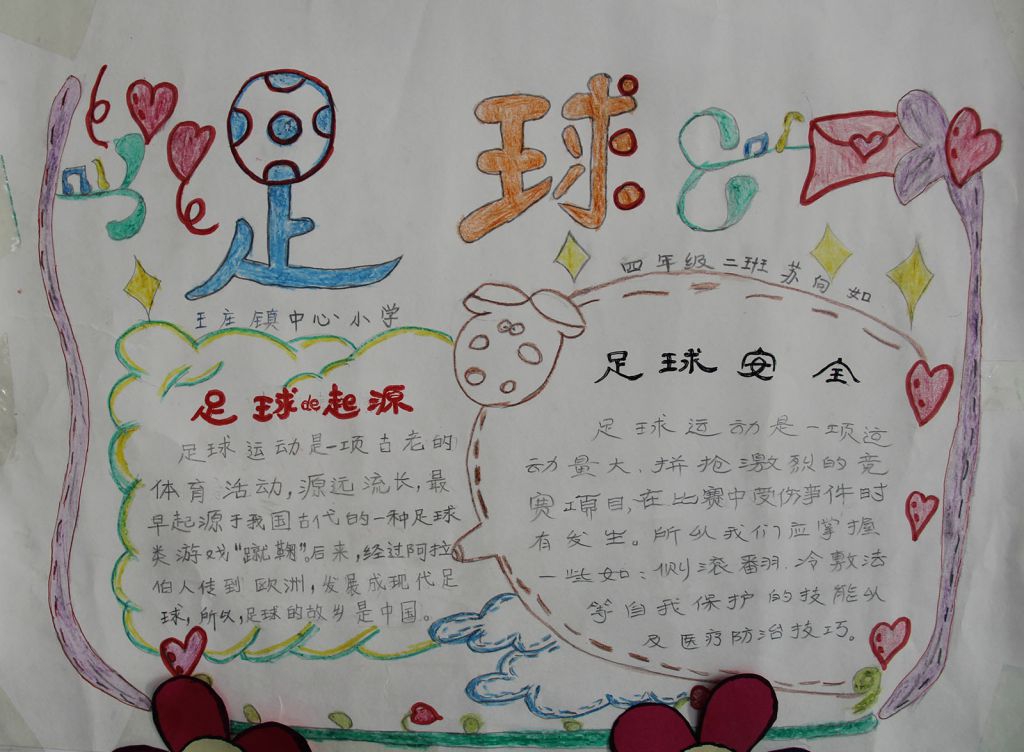 足球
王庄镇中心小学
四年级二班 苏向如
足球de起源
足球运动是一项古老的
体育活动,源远流长,最
早起源于我国古代的一种足球
类游戏“蹴鞠”。后来,经过阿拉
伯人传到欧洲,发展成现代足
球,所以,足球的故乡是中国。
足球安全
足球运动是一项运
动量大、拼抢激烈的竞
赛项目,在比赛中受伤事件时
有发生。所以我们应掌握
一些如:侧滚翻、冷敷法
等自我保护的技能以
及医疗防治技巧。